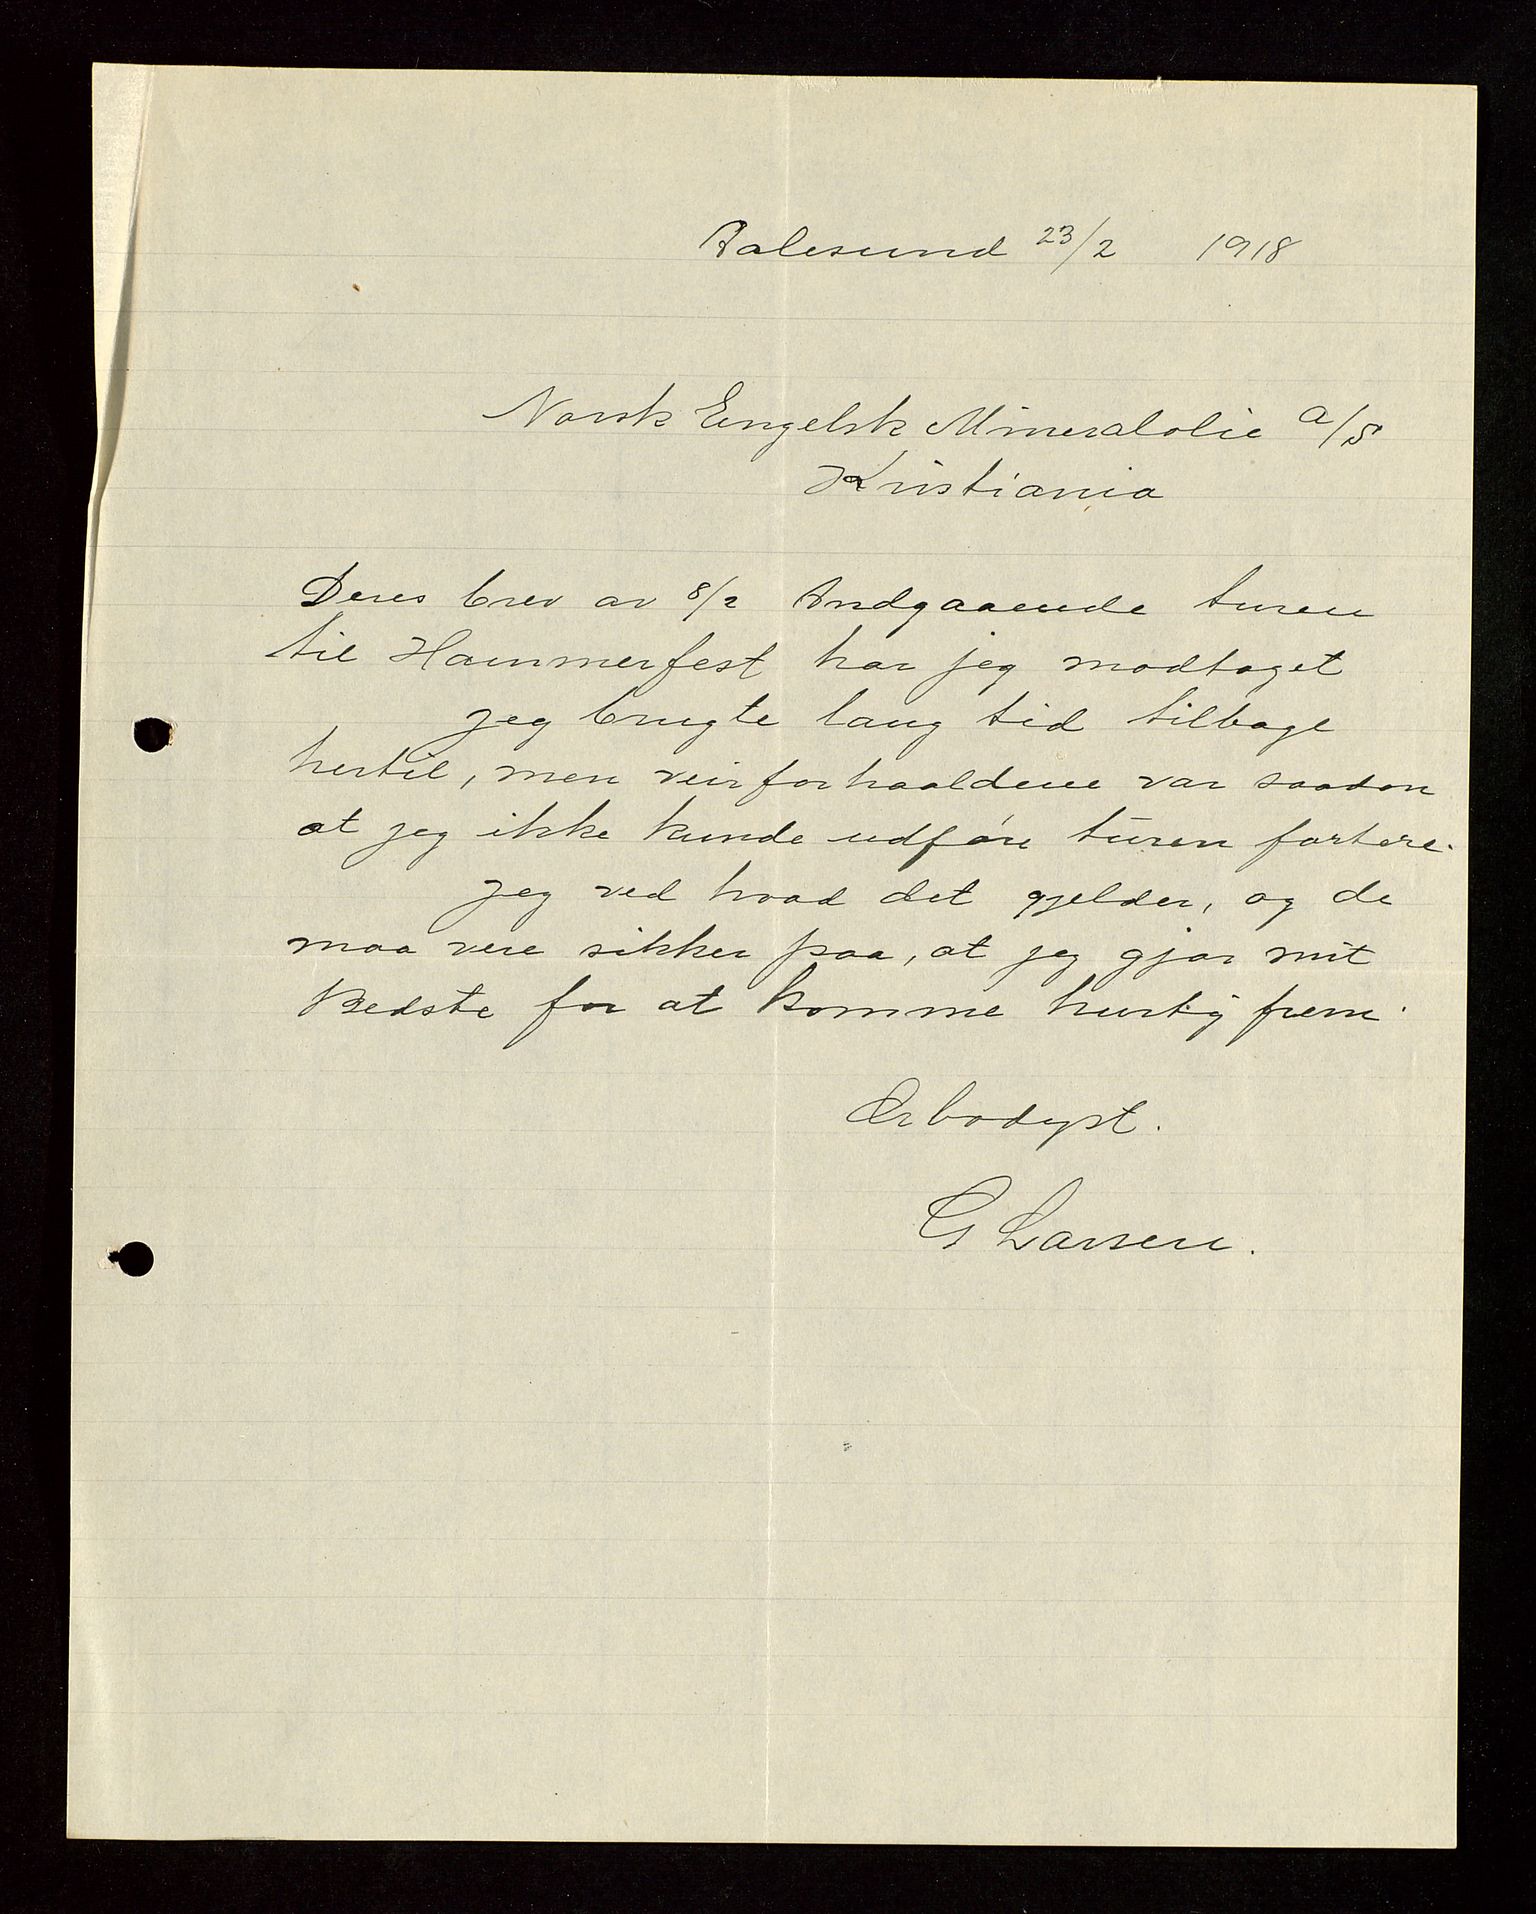 Aalesund 23/2 1918
Norsk Engelsk Mineralolie A/S
Kristiania
Deres brev av 8/2 Andgaaende turen
til Hammerfest har jeg modtaget
jeg brugte lang tid tilbage
hertil, men veirforhaaldene var saadan
at jeg ikke kunde udføre turen fortere.
jeg ved hvad det gjelder, og de
maa vere sikker paa, at jeg gjør mit
Bedste for at komme hurtig frem.
Ærbødigst.
G Larsen.